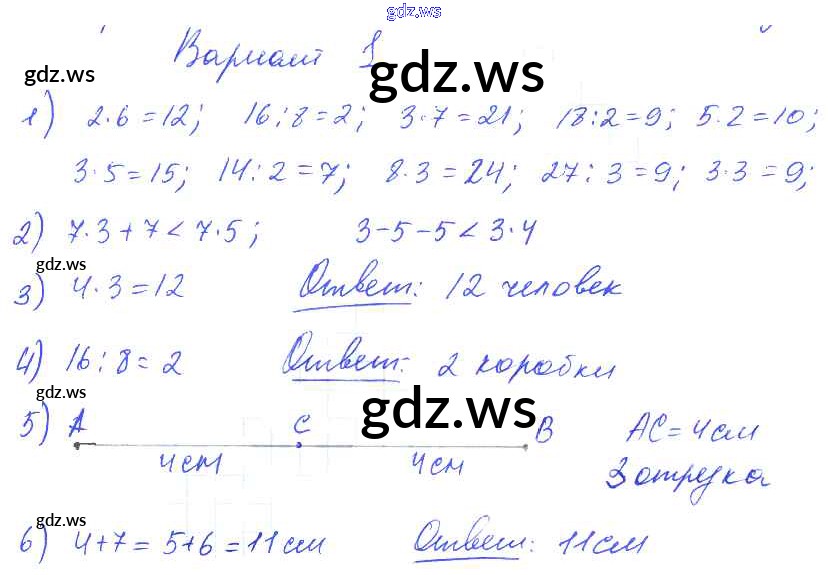 gdz.ws
Вариант 1
gdz.ws
gdz.ws
1) 2·6=12; 16:8=2; 3·7=21; 18:2=9; 5·2=10;
3·5=15; 14:2=7; 8·3=24; 27:3=9; 3·3=9;
2) 7·3+7<7·5; 3-5-5<3·4
gdz.ws
3) 4·3=12 Ответ: 12 человек
4) 16:8=2 Ответ: 2 коробки
gdz.ws
gdz.ws
5) A C B AC=4см
4см 4см 3 отрезка
gdz.ws
6) 4+7=5+6=11см Ответ: 11см